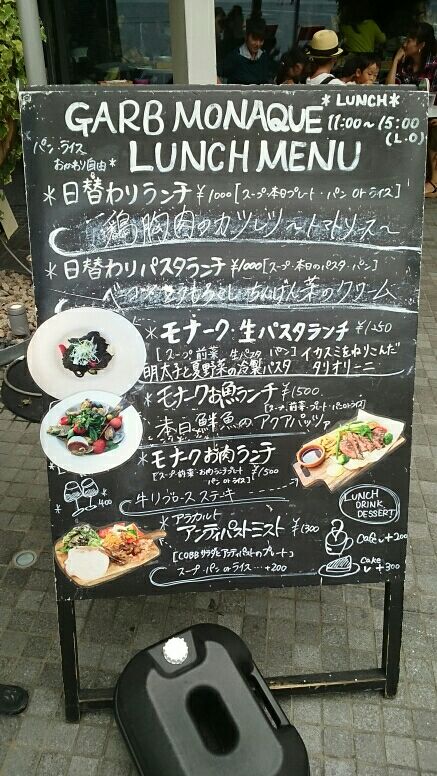 GARB MONAQUE
LUNCH MENU
*LUNCH*
11:00~15:00
(L.O)
パン・ライス
おかわり自由*
*日替わりランチ ¥1000 [スープ・本日プレート・パン or ライス]
鶏胸肉のカツレツ~トマトソース~
*日替わりパスタランチ ¥1000 [スープ・本日のパスタ・パン]
ちんげん菜のクリーム
*モナーク 生パスタランチ ¥1250
[スープ 前菜 生パスタ パン] イカスミをねりこんだ
明太子と夏野菜の冷製パスタ タリオリーニ
*モナークお魚ランチ ¥1500
[スープ・前菜・プレート・パン or ライス]
本日鮮魚のアクアパッツァ
*モナークお肉ランチ
[スープ・前菜・お肉ランチプレート パン or ライス] ¥1500
牛リブロースステーキ
* 400
LUNCH
DRINK
DESSERT
*アラカルト
アンティパストミスト ¥1300
[COBBサラダとアンティパストのプレート]
スープ・パン or ライス…+200
Cafe +200
Cake
+300